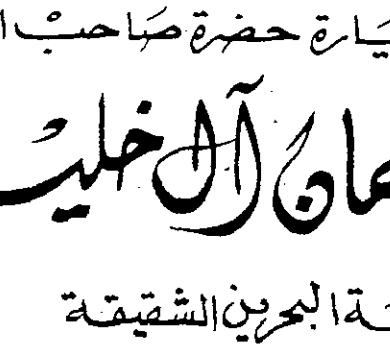 يارة حضرة صاحب ا
مان آل خليـ
ـة البحرين الشقيقة